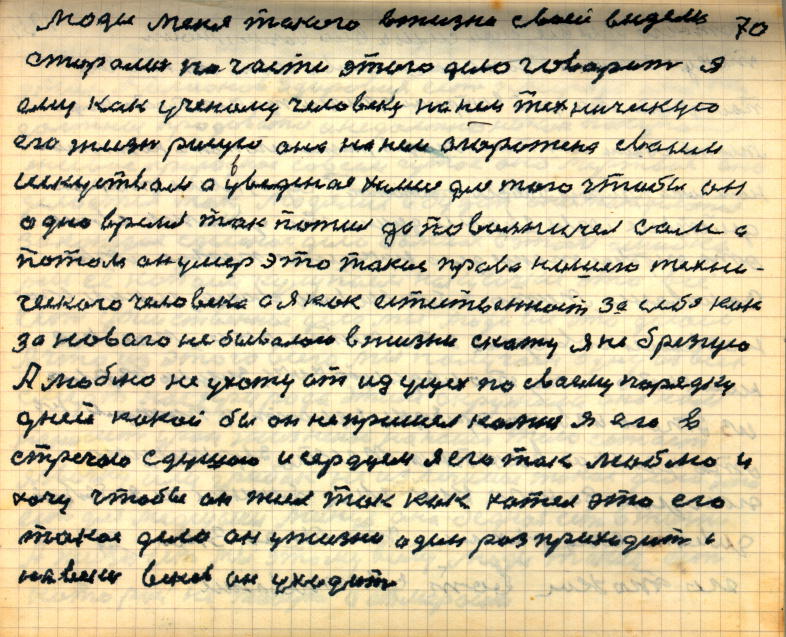 люди меня такого в жизни своей видели 70
старались по части этого дело говорит я
ему как ученому человеку на нем техническую
его жизн рисую она на нем огорожена своим
искуством а уведеная химие для того чтобы он
одно время так пожил да поволничел сам а
потом он умер это такие права нашего техни-
ческого человека а я как естественност за себя как
за новаго не бывалою в жизни скажу я не брезгую
А люблю не ухожу от идущих по своему порядку
дней какой бы он не пришел ко мне я его в
стречаю с душою и сердцем я его так люблю и
хочу чтобы он жил так как хотел это его
такое дело он у жизне один раз приходит и
на веки веков он уходит